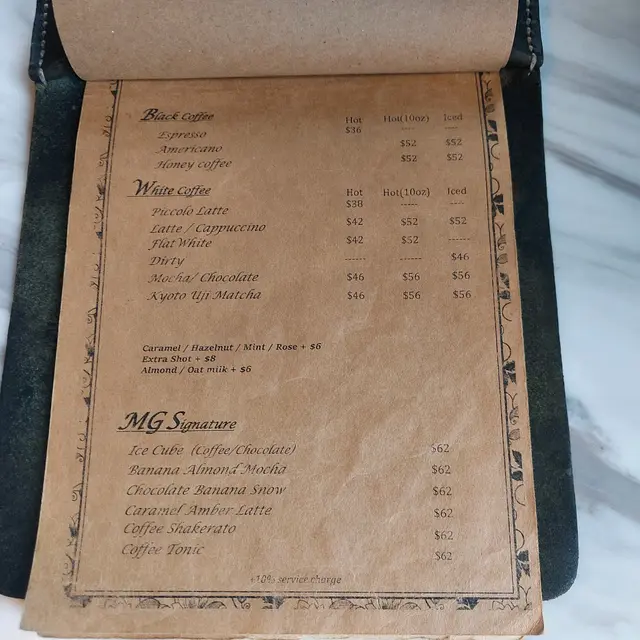 Black Coffee Hot Hot(10oz) Iced
Espresso $36 ---- ----
Americano $52 $52
Honey coffee $52 $52
White Coffee Hot Hot(10oz) Iced
Piccolo Latte $38 ----- ----
Latte / Cappuccino $42 $52 $52
Flat White $42 $52 ------
Dirty ------ ----- $46
Mocha/ Chocolate $46 $56 $56
Kyoto Uji Matcha $46 $56 $56
Caramel / Hazelnut / Mint / Rose + $6
Extra Shot + $8
Almond / Oat milk + $6
MG Signature
Ice Cube (Coffee/Chocolate) $62
Banana Almond Mocha $62
Chocolate Banana Snow $62
Caramel Amber Latte $62
Coffee Shakerato $62
Coffee Tonic $62
+10% service charge